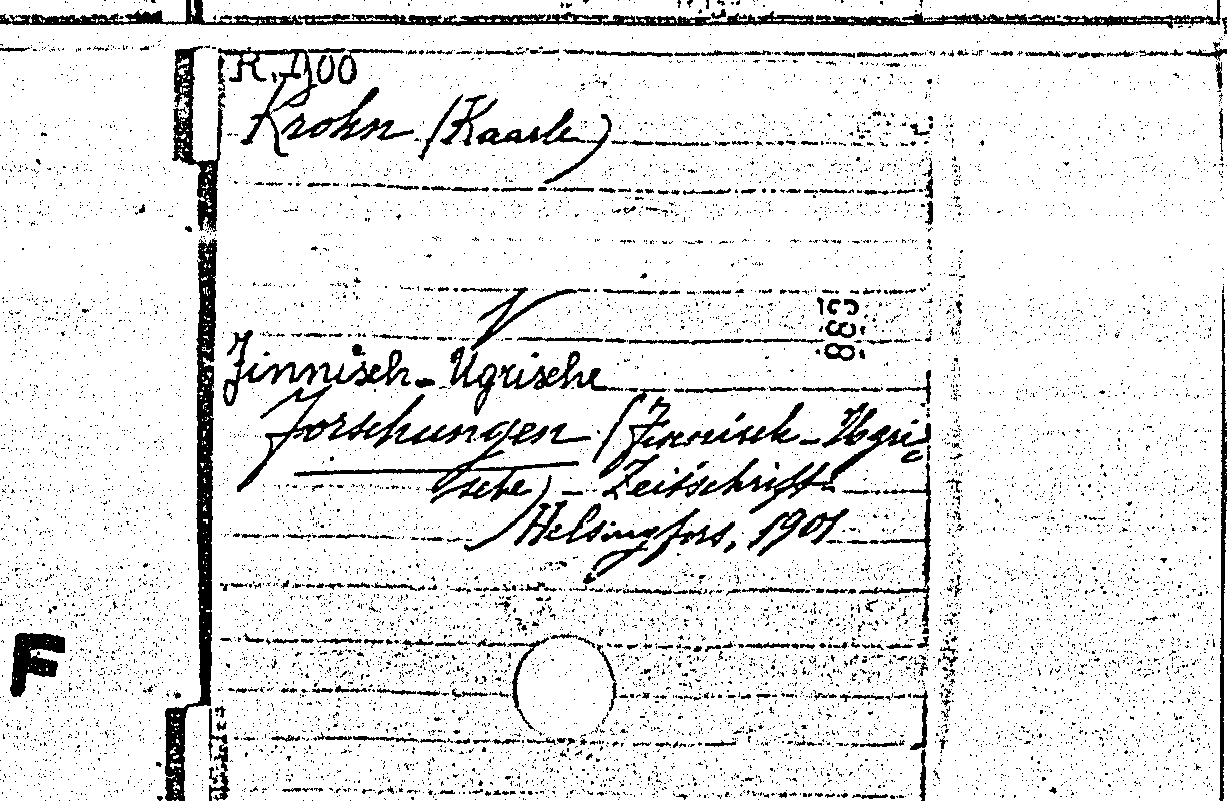 R.900
Krohn (Kaarle)
883
Finnisch-Ugrische
Forschungen (Finnisch-Ugri-
sche) - Zeitschrift-
Helsingfors, 1901
F